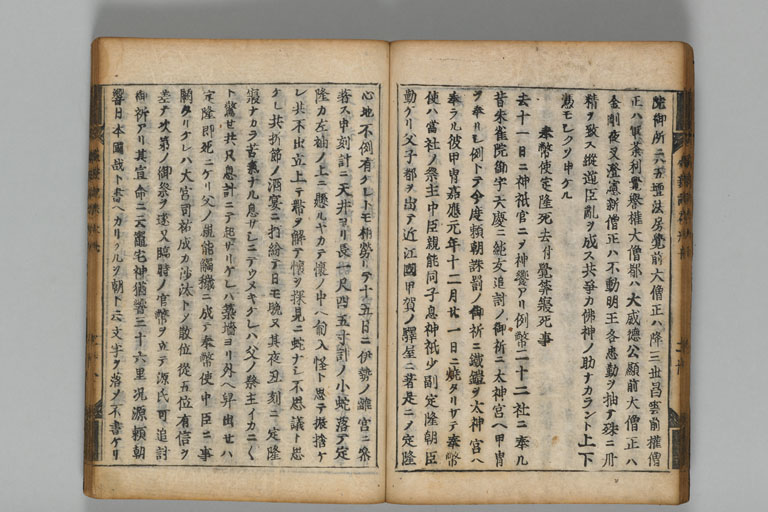 院御所ニハ五壇法房覺前大僧正ハ降三世昌雲前權僧
正ハ軍荼利覺譽權大僧都ハ大威德公顯前大僧正ハ
金剛夜叉澄憲新僧正ハ不動明王各懇勤ヲ抽テ殊ニ丹
精ヲ致ス縱逆臣亂ヲ成ス共爭カ佛神ノ助ナカラント上下
憑モシクソ申ケル
奉幣使定隆死去付覺筭寢死事
去十一日ニ神祇官ニヲ神饗アリ例幣二十二社ニ奉ル
昔朱雀院御宇天慶ニ純友追討ノ御祈ニ太神宮ヘ甲冑
ヲ奉リシ例トテ今度賴朝誅罰ノ御祈ニ鐵鎧ヲ太神宮ヘ
奉ラル彼甲冑嘉應元年十二月廿一日ニ燒タリサテ奉幣
使ハ當社ノ祭主中臣親能同子息神祇少副定隆朝臣
勤ケリ父子都ヲ出テ近江國甲賀ノ驛屋ニ著是ニノ定隆
心地不例有ケレトモ相勞リテ十五日ニ伊勢ノ離宮ニ參
著ス申刻計ニ天井ヨリ長一尺四五寸計ノ小蛇落テ定
隆カ左袖ノ上ニ懸ルヤカテ懷ノ中ヘ匍入怪ト思テ振捨ケ
レ共不出立上テ帶ヲ解テ懷ヲ探見ニ蛇ナシ不思議ト思
ケレ共折節ノ酒宴ニ打紛テ日モ晚ヌ其夜丑刻ニ定隆
寢ナカラ苦氣ナル息サシニテウメキケレハ父ノ祭主イカニヽ
ト驚セ共只息計ニテ起サリケレハ築墻ヨリ外ヘ舁出セハ
定隆卽死ニケリ父ノ親能觸穢ニ成テ奉幣使中臣ニ事
闕タリケレハ大宮司祐成カ沙汰トノ散位從五位有信ヲ
差テ次第ノ御祭ヲ遂又臨時ノ官幣ヲ立テ源氏可追討
御祈アリ其宣命ニ天竈宅神猶響三十六里況源賴朝
響日本國哉ト書ヘカリケルヲ朝ト云文字ヲ落ノ不書ケリ